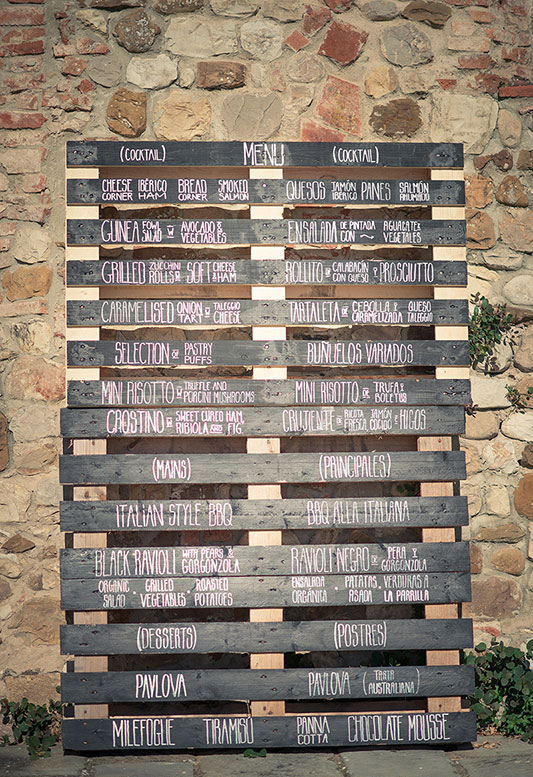 (COCKTAIL) MENU (COCKTAIL)
CHEESE CORNER IBÉRICO HAM BREAD CORNER SMOKED SALMON QUESOS JAMÓN IBÉRICO PANES SALMÓN AHUMADO
GUINEA FOWL SALAD W AVOCADO & VEGETABLES ENSALADA DE PINTADA CON AGUACATE & VEGETALES
GRILLED ZUCCHINI ROLLS W SOFT CHEESE & HAM ROLLITO DE CALABACÍN CON QUESO & PROSCIUTTO
CARAMELISED ONION TART W TALEGGIO CHEESE TARTALETA DE CEBOLLA & CARAMELIZADA QUESO TALEGGIO
SELECTION OF PASTRY PUFFS BUÑUELOS VARIADOS
MINI RISOTTO W TRUFFLE AND PORCINI MUSHROOMS MINI RISOTTO DE TRUFA & BOLETUS
CROSTINO W SWEET CURED HAM, RIBIOLA AND FIG CRUJIENTE DE RICOTA FRESCA, JAMÓN COCIDO & HIGOS
(MAINS) (PRINCIPALES)
ITALIAN STYLE BBQ BBQ ALLA ITALIANA
BLACK RAVIOLI WITH PEARS & GORGONZOLA RAVIOLI NEGRO DE PERA & GORGONZOLA
ORGANIC SALAD · GRILLED VEGETABLES · ROASTED POTATOES ENSALADA ORGÁNICA · PATATAS ASADA · VERDURAS A LA PARRILLA
(DESSERTS) (POSTRES)
PAVLOVA PAVLOVA (TARTA AUSTRALIANA)
MILEFOGLIE TIRAMISÚ PANNA COTTA CHOCOLATE MOUSSE